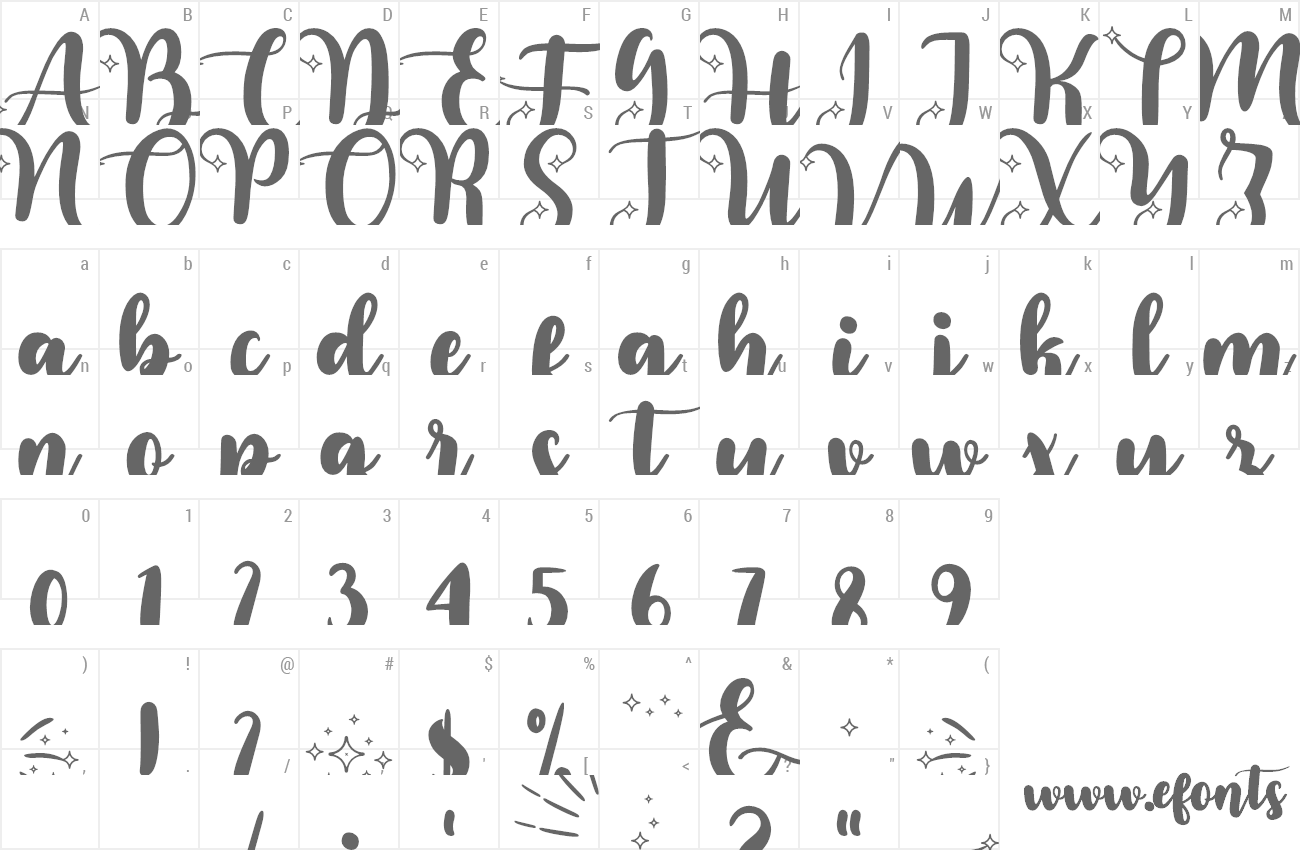 A B C D E F G H I J K L M
A B C D E F G H I J K L M
N P Q R S T U V W X Y Z
N O P O R S T U V W X Y Z
a b c d e f g h i j k l m
a b c d e e a h i i k l m
n o p q r s t u v w x y z
n o p a r c t u v w x u z
0 1 2 3 4 5 6 7 8 9
0 1 2 3 4 5 6 7 8 9
) ! @ # $ % ^ & * (
$ % &
, . / ' [ < ? " }
/ ' ? "
www.efonts